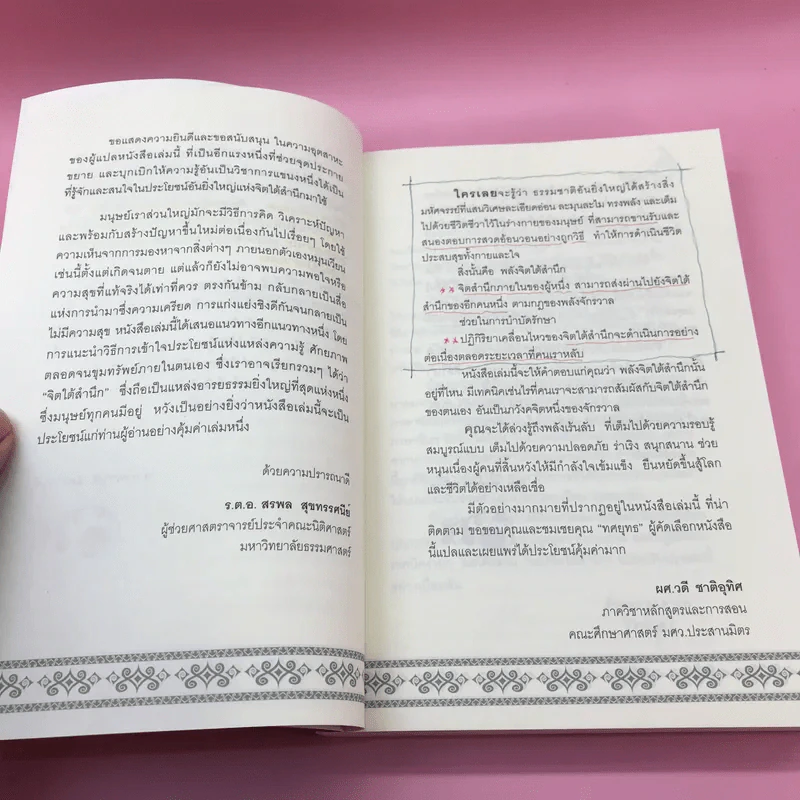 ขอแสดงความยินดีและขอสนับสนุน ในความอุตสาหะ
ของผู้แปลหนังสือเล่มนี้ ที่เป็นอีกแรงหนึ่งที่ช่วยจุดประกาย
ขยาย และบุกเบิกให้ความรู้อันเป็นวิชาการแขนงหนึ่งได้เป็น
ที่รู้จักและสนใจในประโยชน์อันยิ่งใหญ่แห่งจิตใต้สำนึกมาใช้
มนุษย์เราส่วนใหญ่มักจะมีวิธีการคิด วิเคราะห์ปัญหา
และพร้อมกับสร้างปัญหาขึ้นใหม่ต่อเนื่องกันไปเรื่อยๆ โดยใช้
ความเห็นจากการมองหาจากสิ่งต่างๆ ภายนอกตัวเองหมุนเวียน
เช่นนี้ตั้งแต่เกิดจนตาย แต่แล้วก็ยังไม่อาจพบความพอใจหรือ
ความสุขที่แท้จริงได้เท่าที่ควร ตรงกันข้าม กลับกลายเป็นสื่อ
แห่งการนำมาซึ่งความเครียด การแก่งแย่งชิงดีกันจนกลายเป็น
ไม่มีความสุข หนังสือเล่มนี้ได้เสนอแนวทางอีกแนวทางหนึ่ง โดย
การแนะนำวิธีการเข้าใจประโยชน์แห่งแหล่งความรู้ ศักยภาพ
ตลอดจนขุมทรัพย์ภายในตนเอง ซึ่งเราอาจเรียกรวมๆ ได้ว่า
“จิตใต้สำนึก” ซึ่งถือเป็นแหล่งอารยธรรมยิ่งใหญ่ที่สุดแห่งหนึ่ง
ซึ่งมนุษย์ทุกคนมีอยู่ หวังเป็นอย่างยิ่งว่าหนังสือเล่มนี้จะเป็น
ประโยชน์แก่ท่านผู้อ่านอย่างคุ้มค่าเล่มหนึ่ง
ด้วยความปรารถนาดี
ร.ต.อ. สรพล สุขทรรศนีย์
ผู้ช่วยศาสตราจารย์ประจำคณะนิติศาสตร์
มหาวิทยาลัยธรรมศาสตร์
ใครเลยจะรู้ว่า ธรรมชาติอันยิ่งใหญ่ได้สร้างสิ่ง
มหัศจรรย์ที่แสนวิเศษละเอียดอ่อน ละมุนละไม ทรงพลัง และเต็ม
ไปด้วยชีวิตชีวาไว้ในร่างกายของมนุษย์ ที่สามารถขานรับและ
สนองตอบการสวดอ้อนวอนอย่างถูกวิธี ทำให้การดำเนินชีวิต
ประสบสุขทั้งกายและใจ
สิ่งนั้นคือ พลังจิตใต้สำนึก
จิตสำนึกภายในของผู้หนึ่ง สามารถส่งผ่านไปยังจิตใต้
สำนึกของอีกคนหนึ่ง ตามกฎของพลังจักรวาล
ช่วยในการบำบัดรักษา
ปฏิกิริยาเคลื่อนไหวของจิตใต้สำนึกจะดำเนินการอย่าง
ต่อเนื่องตลอดระยะเวลาที่คนเราหลับ
หนังสือเล่มนี้จะให้คำตอบแก่คุณว่า พลังจิตใต้สำนึกนั้น
อยู่ที่ไหน มีเทคนิคเช่นไรที่คนเราจะสามารถสัมผัสกับจิตใต้สำนึก
ของตนเอง อันเป็นภวังคจิตหนึ่งของจักรวาล
คุณจะได้ล่วงรู้ถึงพลังเร้นลับ ที่เต็มไปด้วยความรอบรู้
สมบูรณ์แบบ เต็มไปด้วยความปลอดภัย ร่าเริง สนุกสนาน ช่วย
หนุนเนื่องผู้คนที่สิ้นหวังให้มีกำลังใจเข้มแข็ง ยืนหยัดขึ้นสู้โลก
และชีวิตได้อย่างเหลือเชื่อ
มีตัวอย่างมากมายที่ปรากฏอยู่ในหนังสือเล่มนี้ ที่น่า
ติดตาม ขอขอบคุณและชมเชยคุณ “ทศยุทธ” ผู้คัดเลือกหนังสือ
นี้แปลและเผยแพร่ได้ประโยชน์คุ้มค่ามาก
ผศ.วดี ชาติอุทิศ
ภาควิชาหลักสูตรและการสอน
คณะศึกษาศาสตร์ มศว.ประสานมิตร